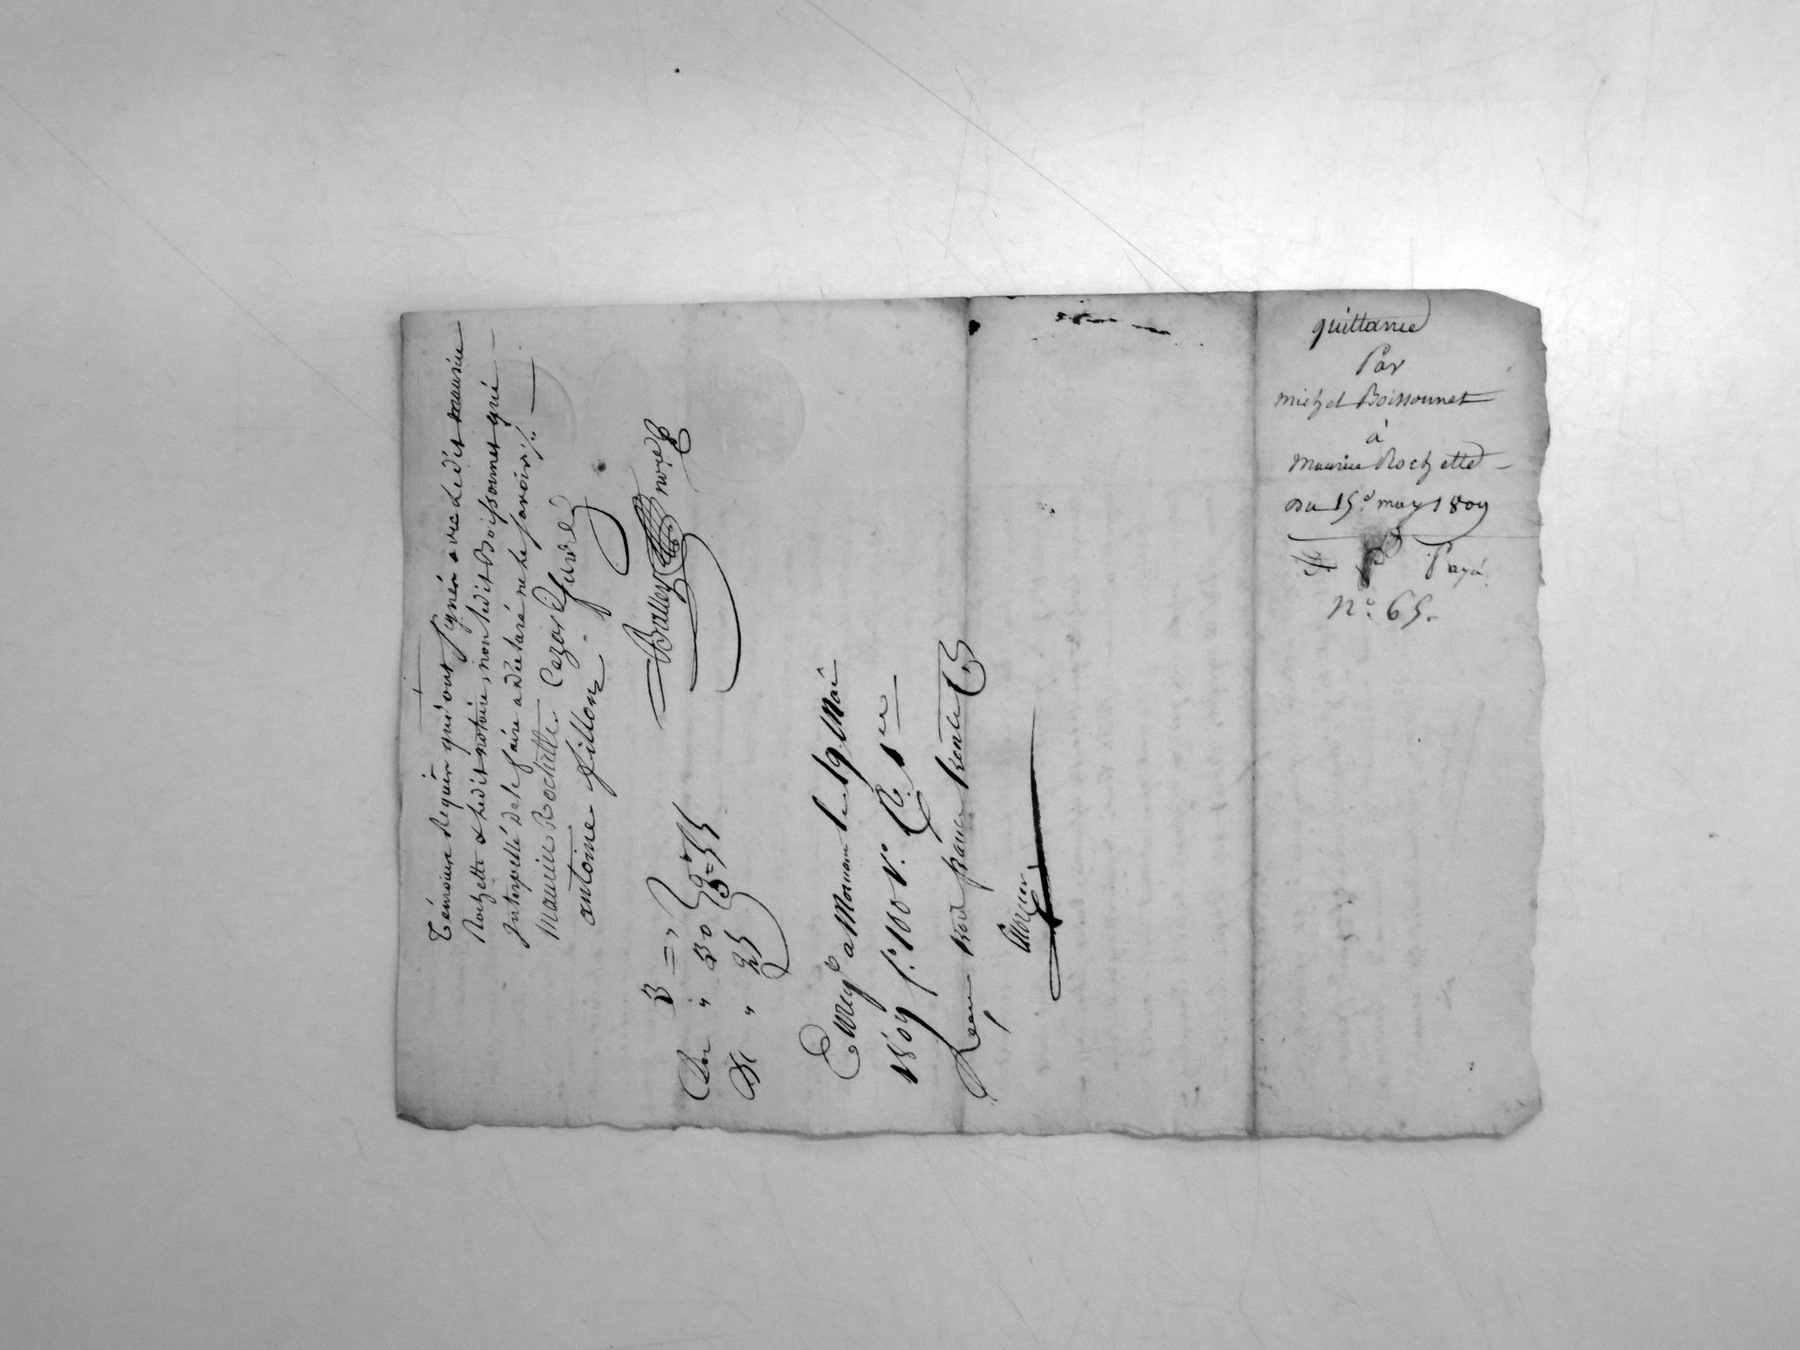 Témoins Requis qui ont Signés avec Ledit maurice
Rochette & Ledit notaire, non Ledit Boissonnet qui
Interpellé de le faire a declaré ne le savoir ./.
Maurice Rochette
antoine fillon
Balley nore
3 = ,
" 30
" 35
Enregé a Mornant le 19 Mai
1809 fo 100 Vo
Reçu trois francs trente
quittance
Par
michel Boissonnet
à
Maurice Rochette
Du 15e may 1809
Payé
no. 65.